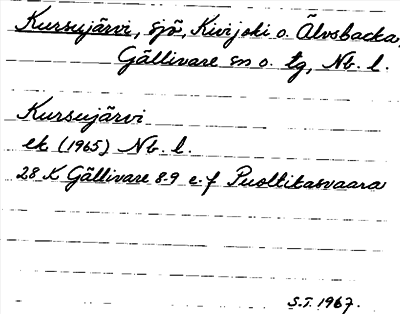 Kursujärvi, sjö, Kivijoki o. Älvsbacka,
Gällivare sn o. tg, Nb. l.
Kursujärvi
ek (1965) Nb. l.
28 K Gällivare 8-9 e-f Puoltikasvaara
S.T. 1967.